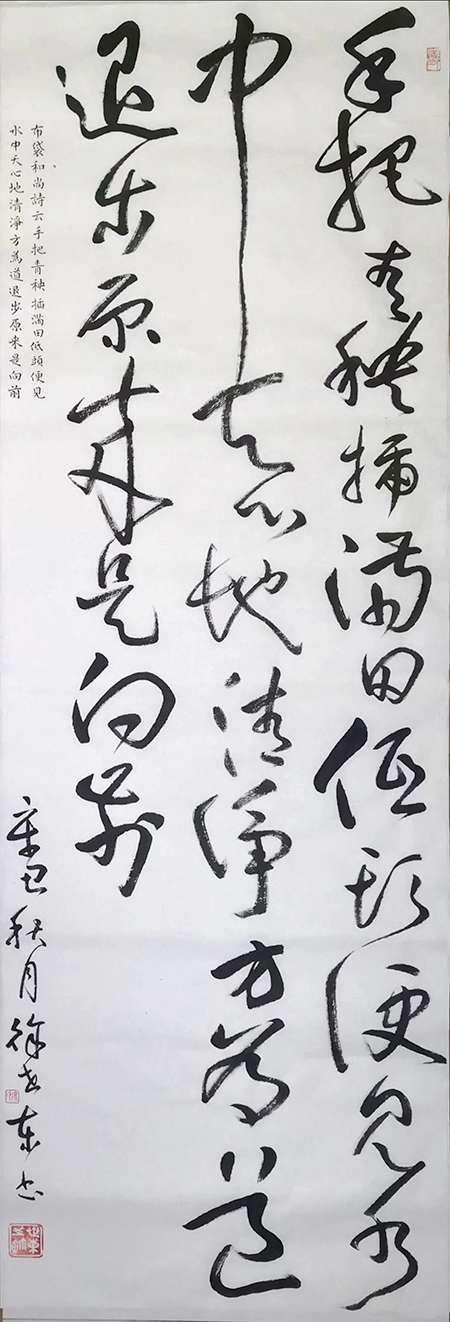 手把青秧插滿田低頭便見水
中天心地清淨方為道
退步原來是向前
布袋和尚詩云手把青秧插滿田低頭便見
水中天心地清淨方為道退步原來是向前
辛丑秋月徐世东书